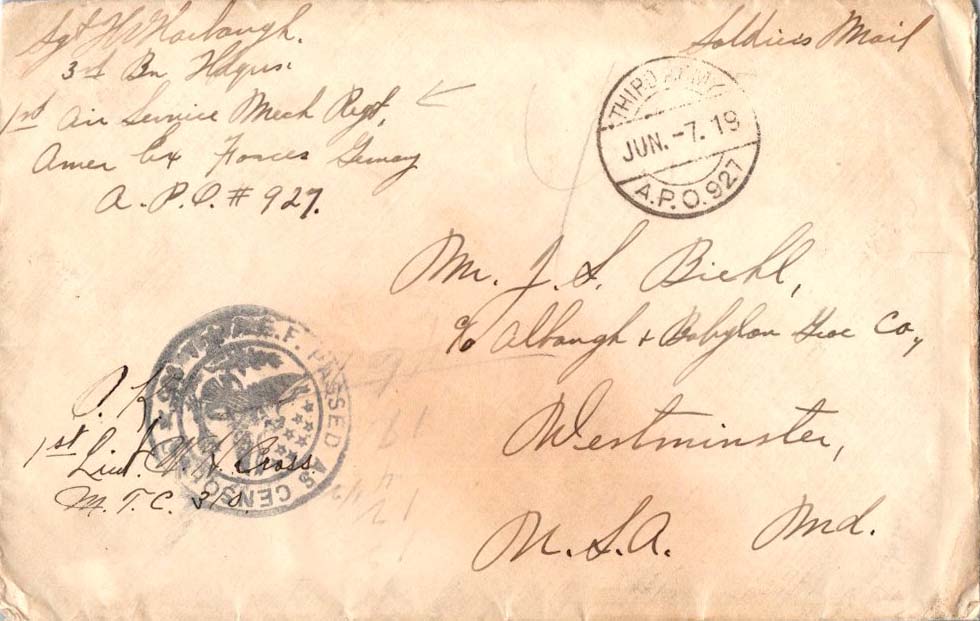 Sgt H W Harbaugh.
3rd Bn Hdqrs.
1st Air Service Mech Regt,
Amer Ex Forces Gemay
A.P.O. # 927.
Soldiers Mail
THIRD ARMY
JUN.-7.19
A.P.O. 927
Mr. J. S. Biehl,
c/o Albaugh + Babylon Groc Co,
Westminster,
U.S.A. Md.
A.E.F. PASSED AS CENSORED
O.K.
1st Lieut. Cross.
M.T.C.